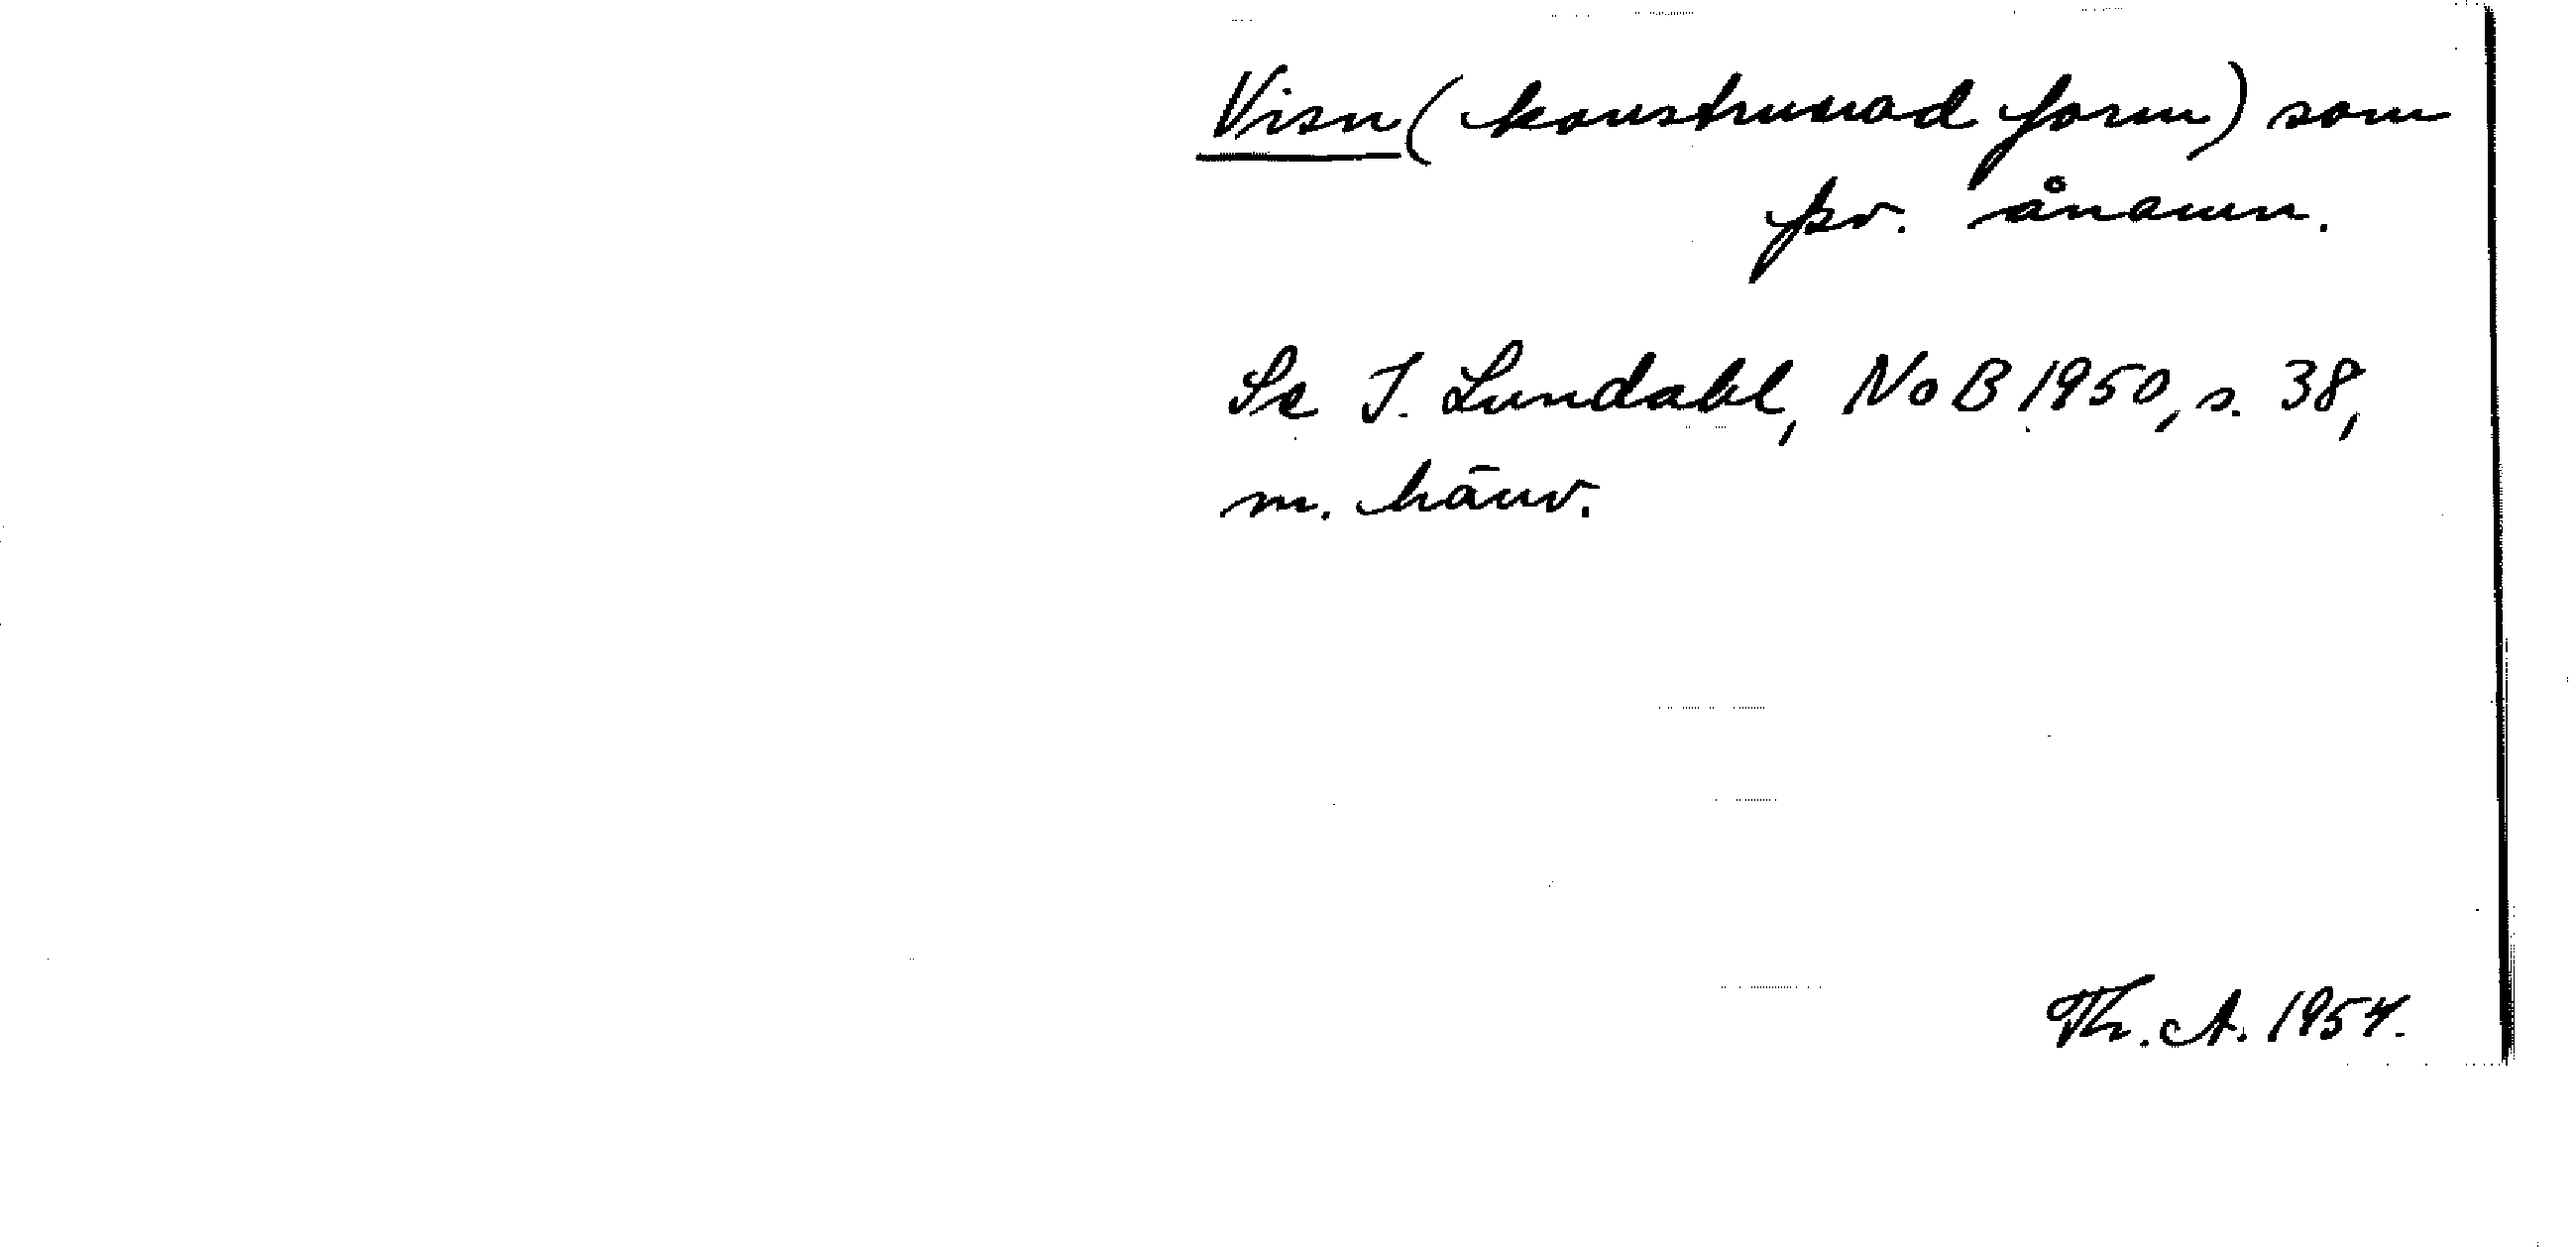 Visn (konstruerad form) som
fsv. ånamn.
Se I. Lundahl, NoB 1950, s. 38,
m. hänv.
Th. A. 1954.